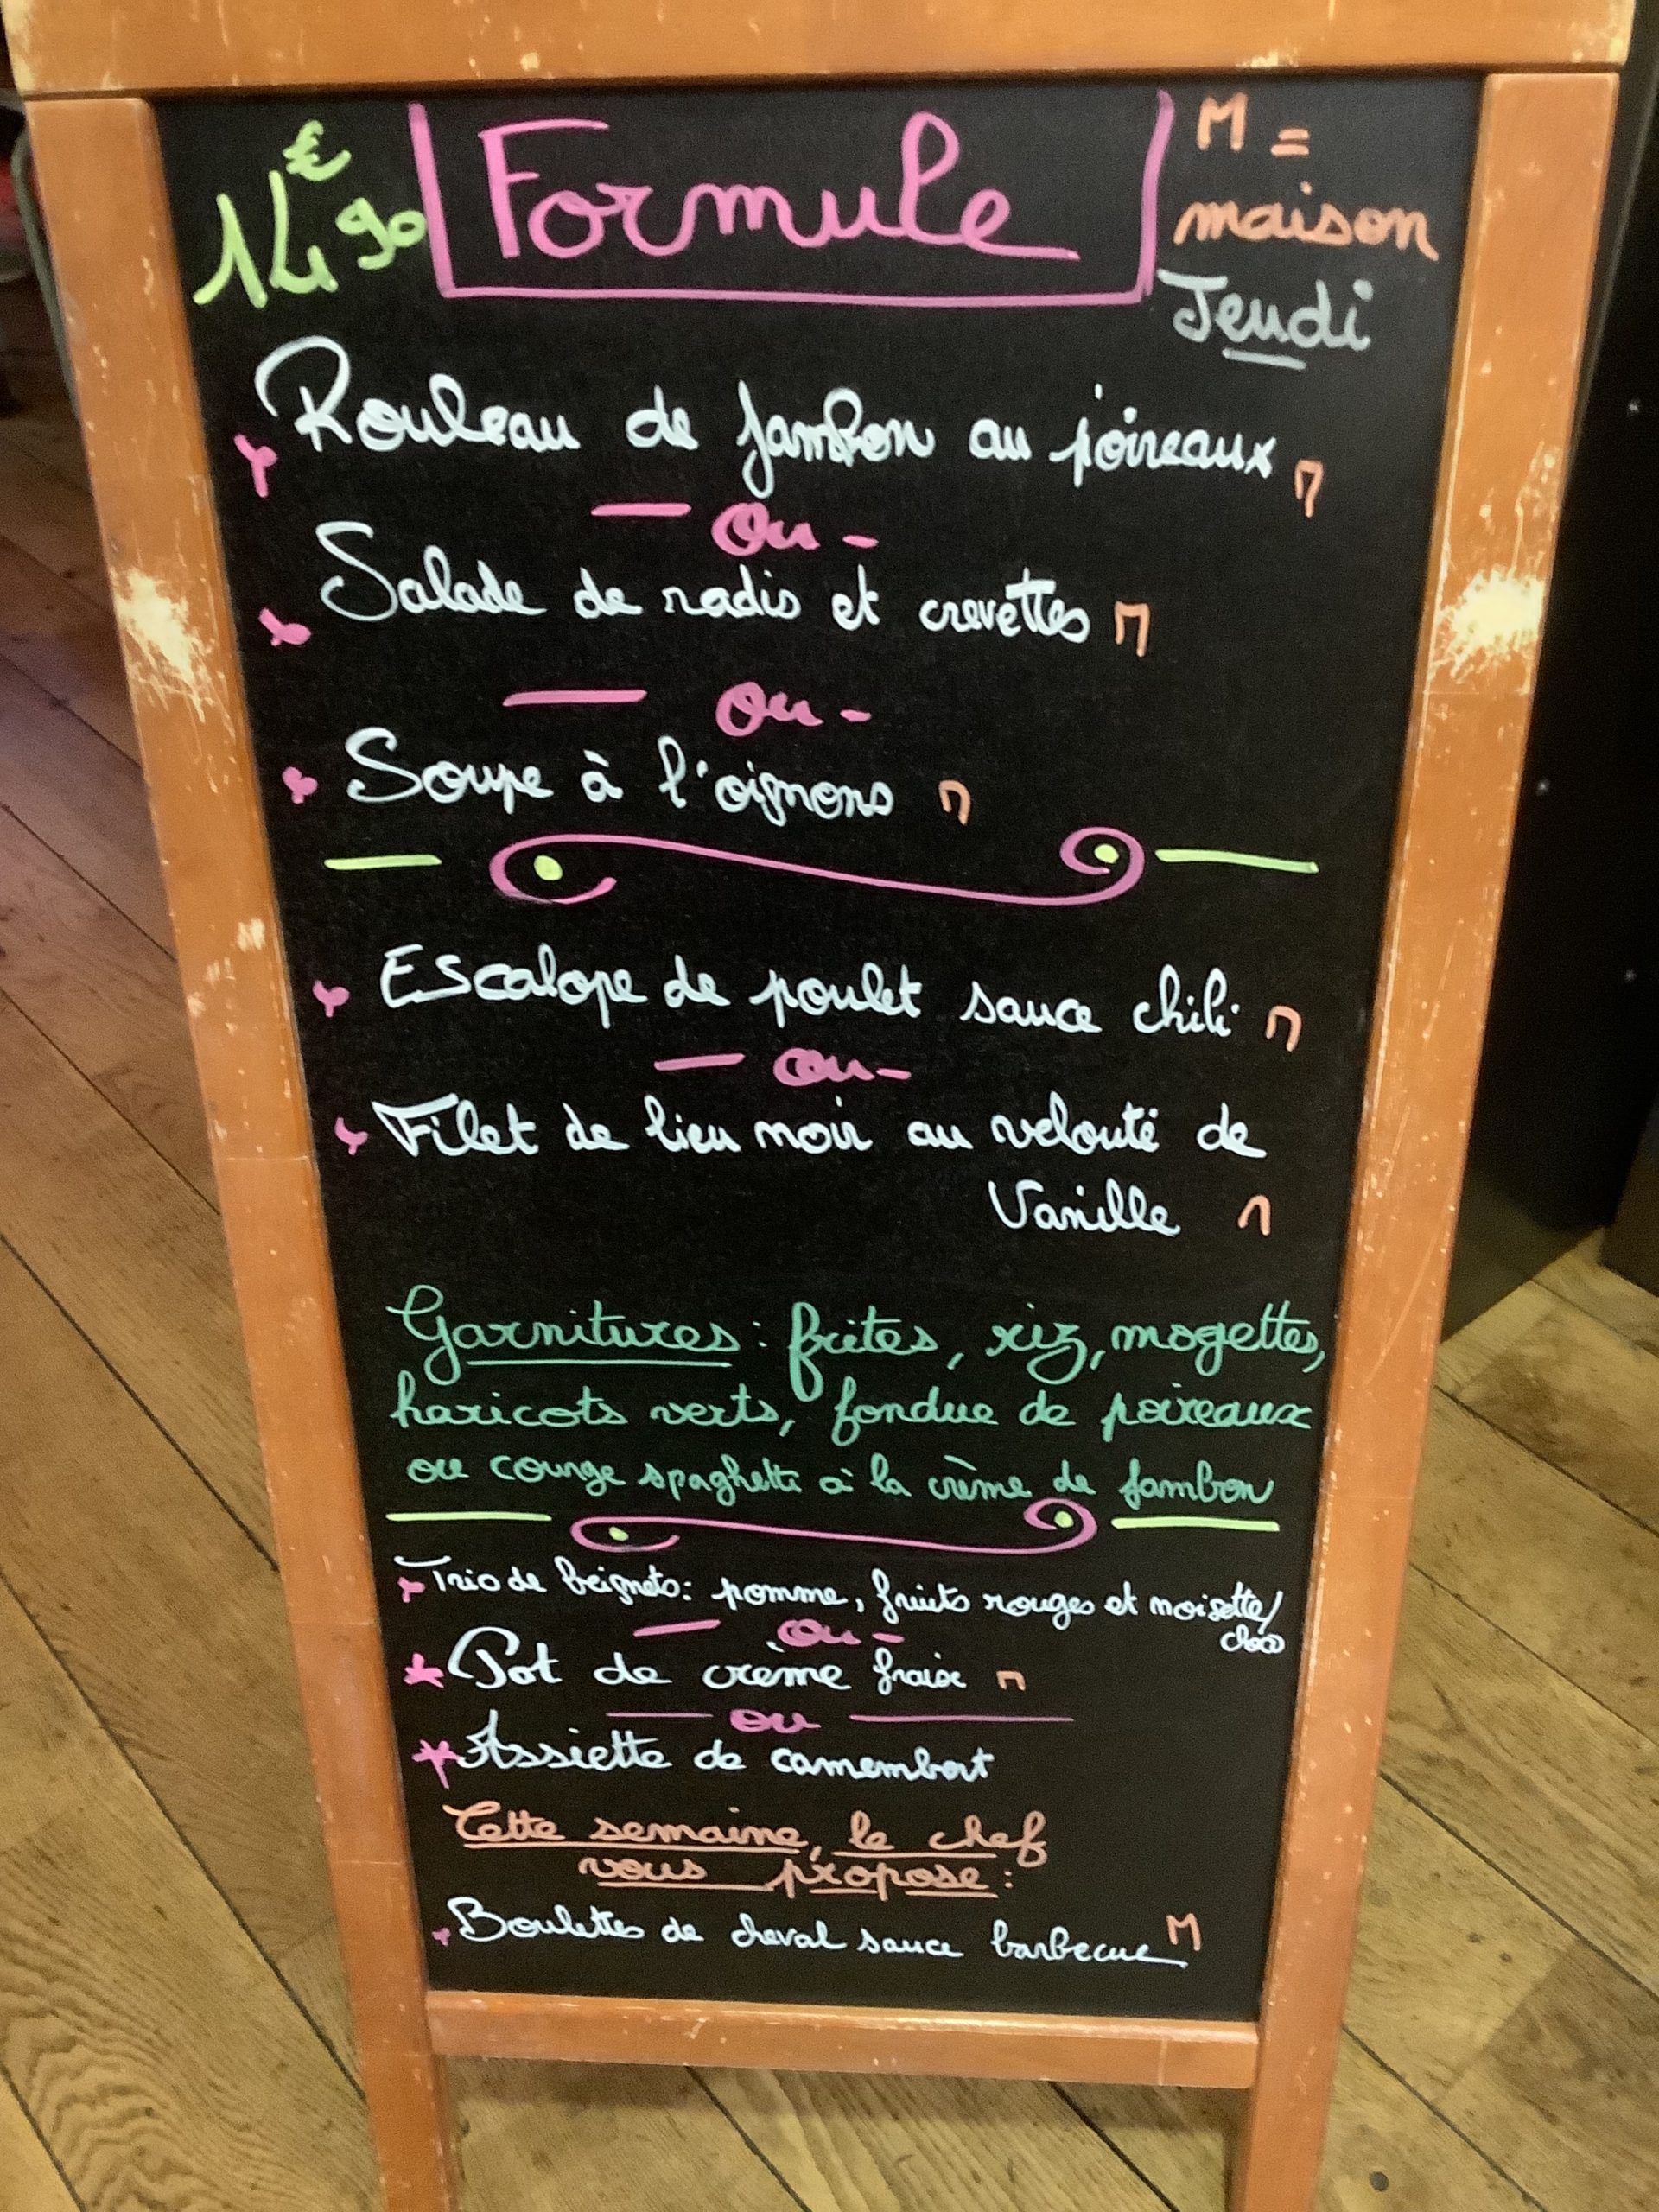 14€90 Formule M =
maison
Jeudi
Rouleau de jambon au poireaux M
- ou -
Salade de radis et crevettes M
- ou -
Soupe à l'oignons M
Escalope de poulet sauce chili M
- ou -
Filet de lieu noir au velouté de
Vanille M
Garnitures : frites, riz, mogettes,
haricots verts, fondue de poireaux
ou courge spaghetti à la crème de jambon
Trio de beignets : pomme, fruits rouges et noisette/
choco
- ou -
Pot de crème fraise M
- ou -
Assiette de camembert
Cette semaine, le chef
vous propose :
Boulettes de cheval sauce barbecue M